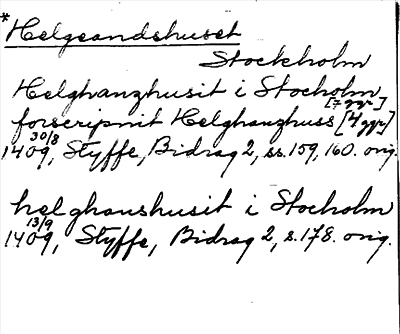 *Helgeandshuset
Stockholm
Helghanzhusit i Stocholm [7 ggr]
forscripnit Helghanzhuss [4 ggr]
1409 30/8, Styffe, Bidrag 2, ss. 159, 160. orig.
helghanshusit i Stocholm
1409 13/9, Styffe, Bidrag 2, s. 178. orig.